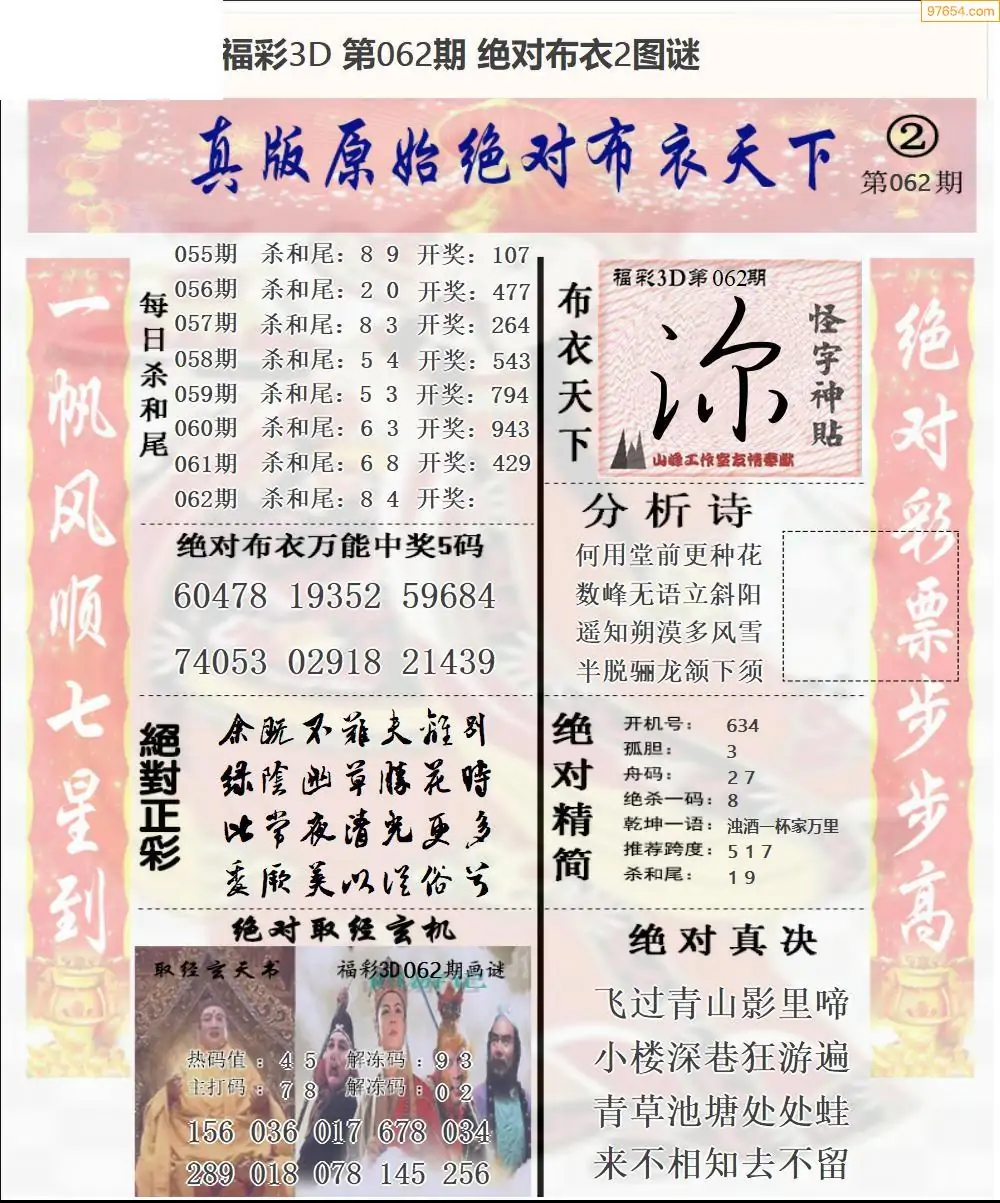 97654.com
福彩3D 第062期 绝对布衣2图谜
真版原始绝对布衣天下
②
第062期
一帆风顺七星到
每日杀和尾
055期 杀和尾：8 9 开奖：107
056期 杀和尾：2 0 开奖：477
057期 杀和尾：8 3 开奖：264
058期 杀和尾：5 4 开奖：543
059期 杀和尾：5 3 开奖：794
060期 杀和尾：6 3 开奖：943
061期 杀和尾：6 8 开奖：429
062期 杀和尾：8 4 开奖：
绝对布衣万能中奖5码
60478 19352 59684
74053 02918 21439
絕對正彩
余既不難夫離别
绿陰幽草勝花時
比常夜清光更多
委厥美以從俗兮
绝对取经玄机
取经玄天书
福彩3D062期画谜
热码值：4 5 解冻码：9 3
主打码：7 8 解冻码：0 2
156 036 017 678 034
289 018 078 145 256
布衣天下
福彩3D第062期
怪字神貼
山峰工作室友情奉献
分析诗
何用堂前更种花
数峰无语立斜阳
遥知朔漠多风雪
半脱骊龙颔下须
绝对精简
开机号：634
孤胆：3
舟码：2 7
绝杀一码：8
乾坤一语：浊酒一杯家万里
推荐跨度：5 1 7
杀和尾：1 9
绝对真决
飞过青山影里啼
小楼深巷狂游遍
青草池塘处处蛙
来不相知去不留
绝对彩票步步高